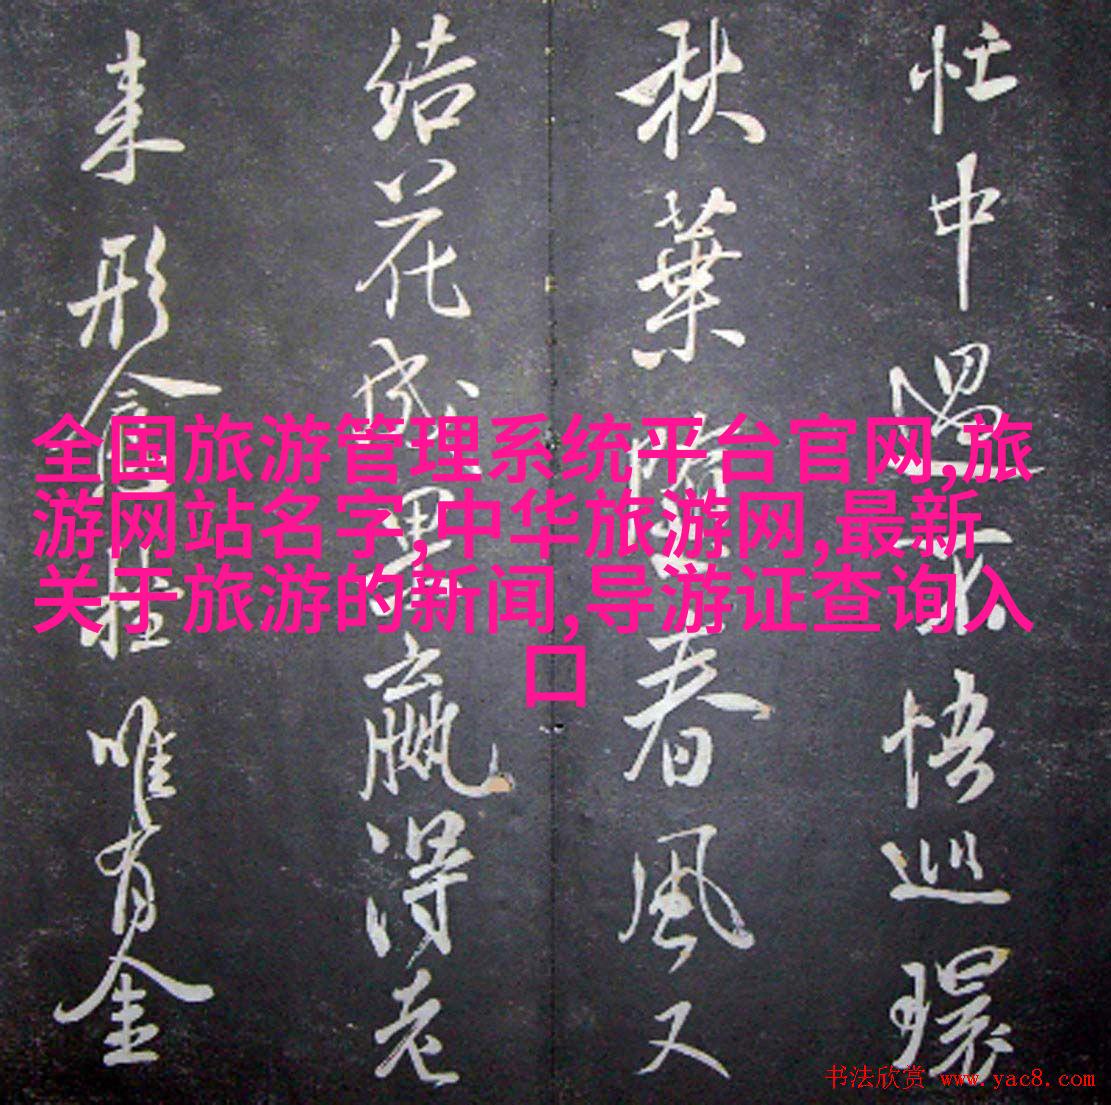 忙中遇
悟巡環
秋葉
春風又
结花成
赢得老
来形
唯有金
全国旅游管理系统平台官网,旅
游网站名字,中华旅游网,最新
关于旅游的新闻,导游证查询入
口
书法欣赏 www.yac8.com